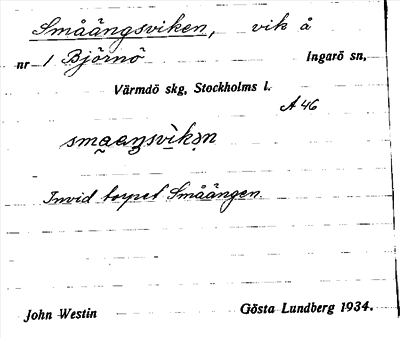 Småängsviken, vik å
nr 1 Björnö Ingarö sn,
Värmdö skg, Stockholms l.
A 46
smaaŋsvìkən
Invid torpet Småängen.
John Westin Gösta Lundberg 1934.